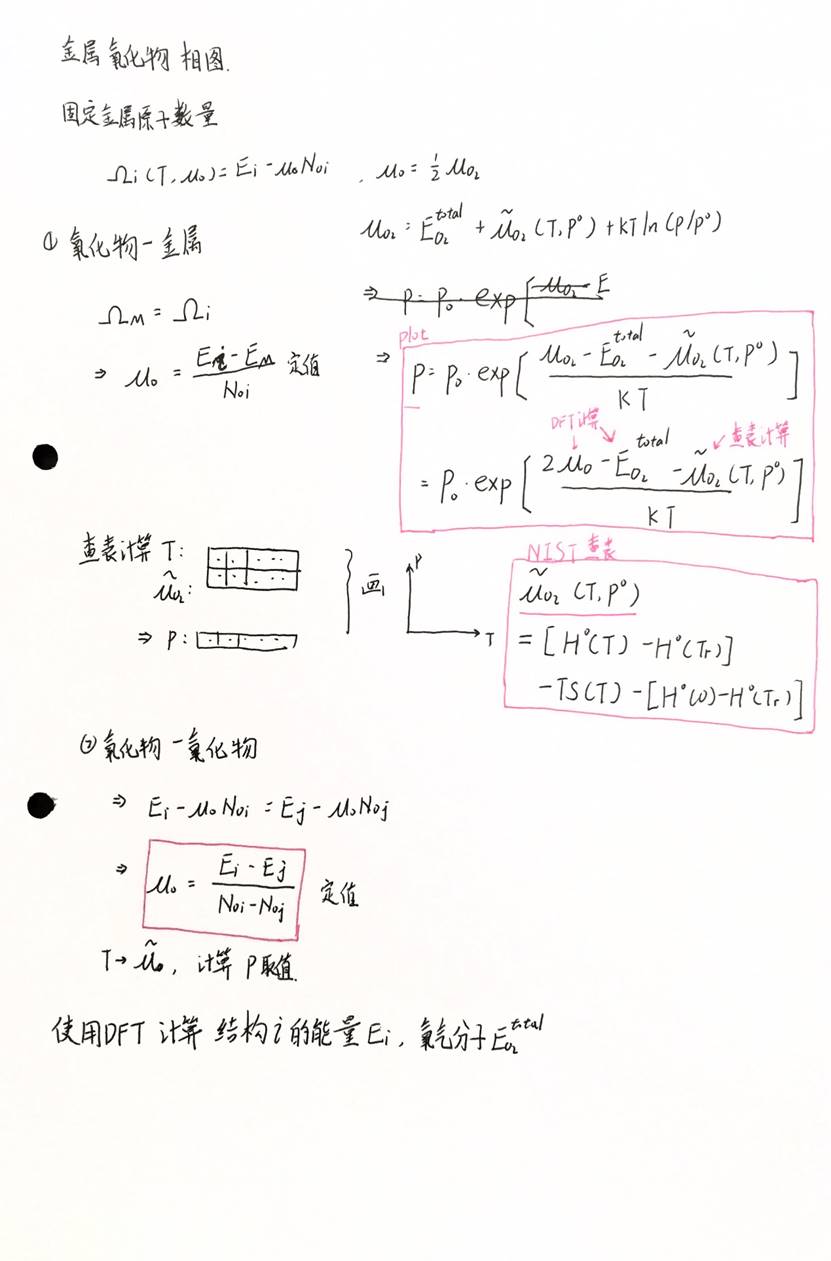 金属氧化物相图.
固定金属原子数量
Ωi(T,μo)=Ei-μoNoi , μo=½μo₂
μo₂=E_{O₂}^{total}+μ̃o₂(T,P°)+kTln(P/P°)
① 氧化物-金属
Ω_M=Ωi
⇒ P=P₀·exp[μo₂-E
⇒ μo=(Ei-E_M)/Noi 定值
plot
⇒ P=P₀·exp[(μo₂-E_{O₂}^{total}-μ̃o₂(T,P°))/KT]
DFT计算 查表计算
=P₀·exp[(2μo-E_{O₂}^{total}-μ̃o₂(T,P°))/KT]
查表计算 T:
μ̃o₂:
⇒ P:
画
P
T
NIST 查表
μ̃o₂(T,P°)
=[H°(T)-H°(Tr)]
-TS(T)-[H°(0)-H°(Tr)]
② 氧化物-氧化物
⇒ Ei-μoNoi=Ej-μoNoj
⇒ μo=(Ei-Ej)/(Noi-Noj) 定值
T→μ̃o, 计算P取值.
使用DFT计算结构i的能量Ei, 氧气分子E_{O₂}^{total}